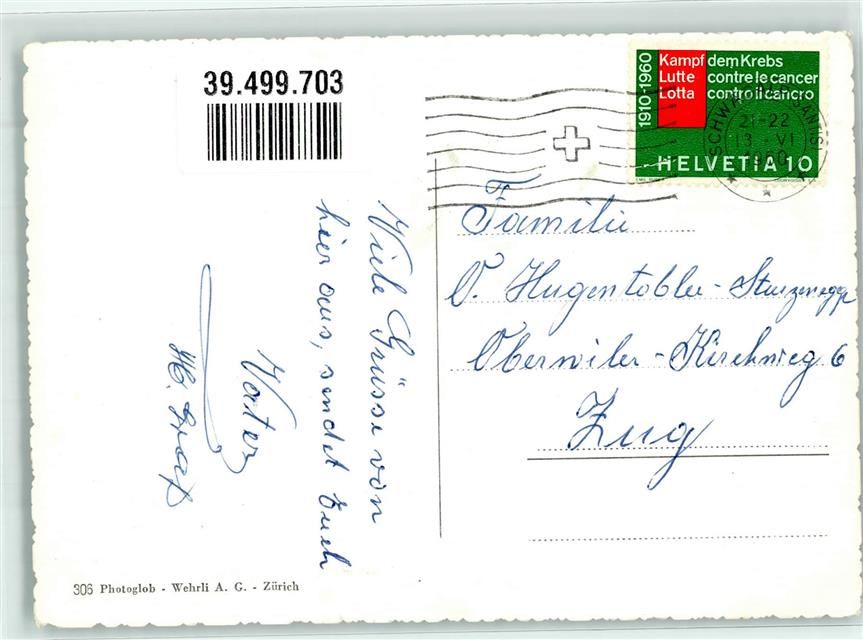 39.499.703
1910-1960
Kampf dem Krebs
Lutte contre le cancer
Lotta contro il cancro
HELVETIA 10
21-22
13.-VI
1960
Familie
O. Hugentobler-Sturzenegger
Oberwiler-Kirchweg 6
Zug
Viele Grüsse von
hier aus, sendet Euch
Vater
306 Photoglob - Wehrli A. G. - Zürich